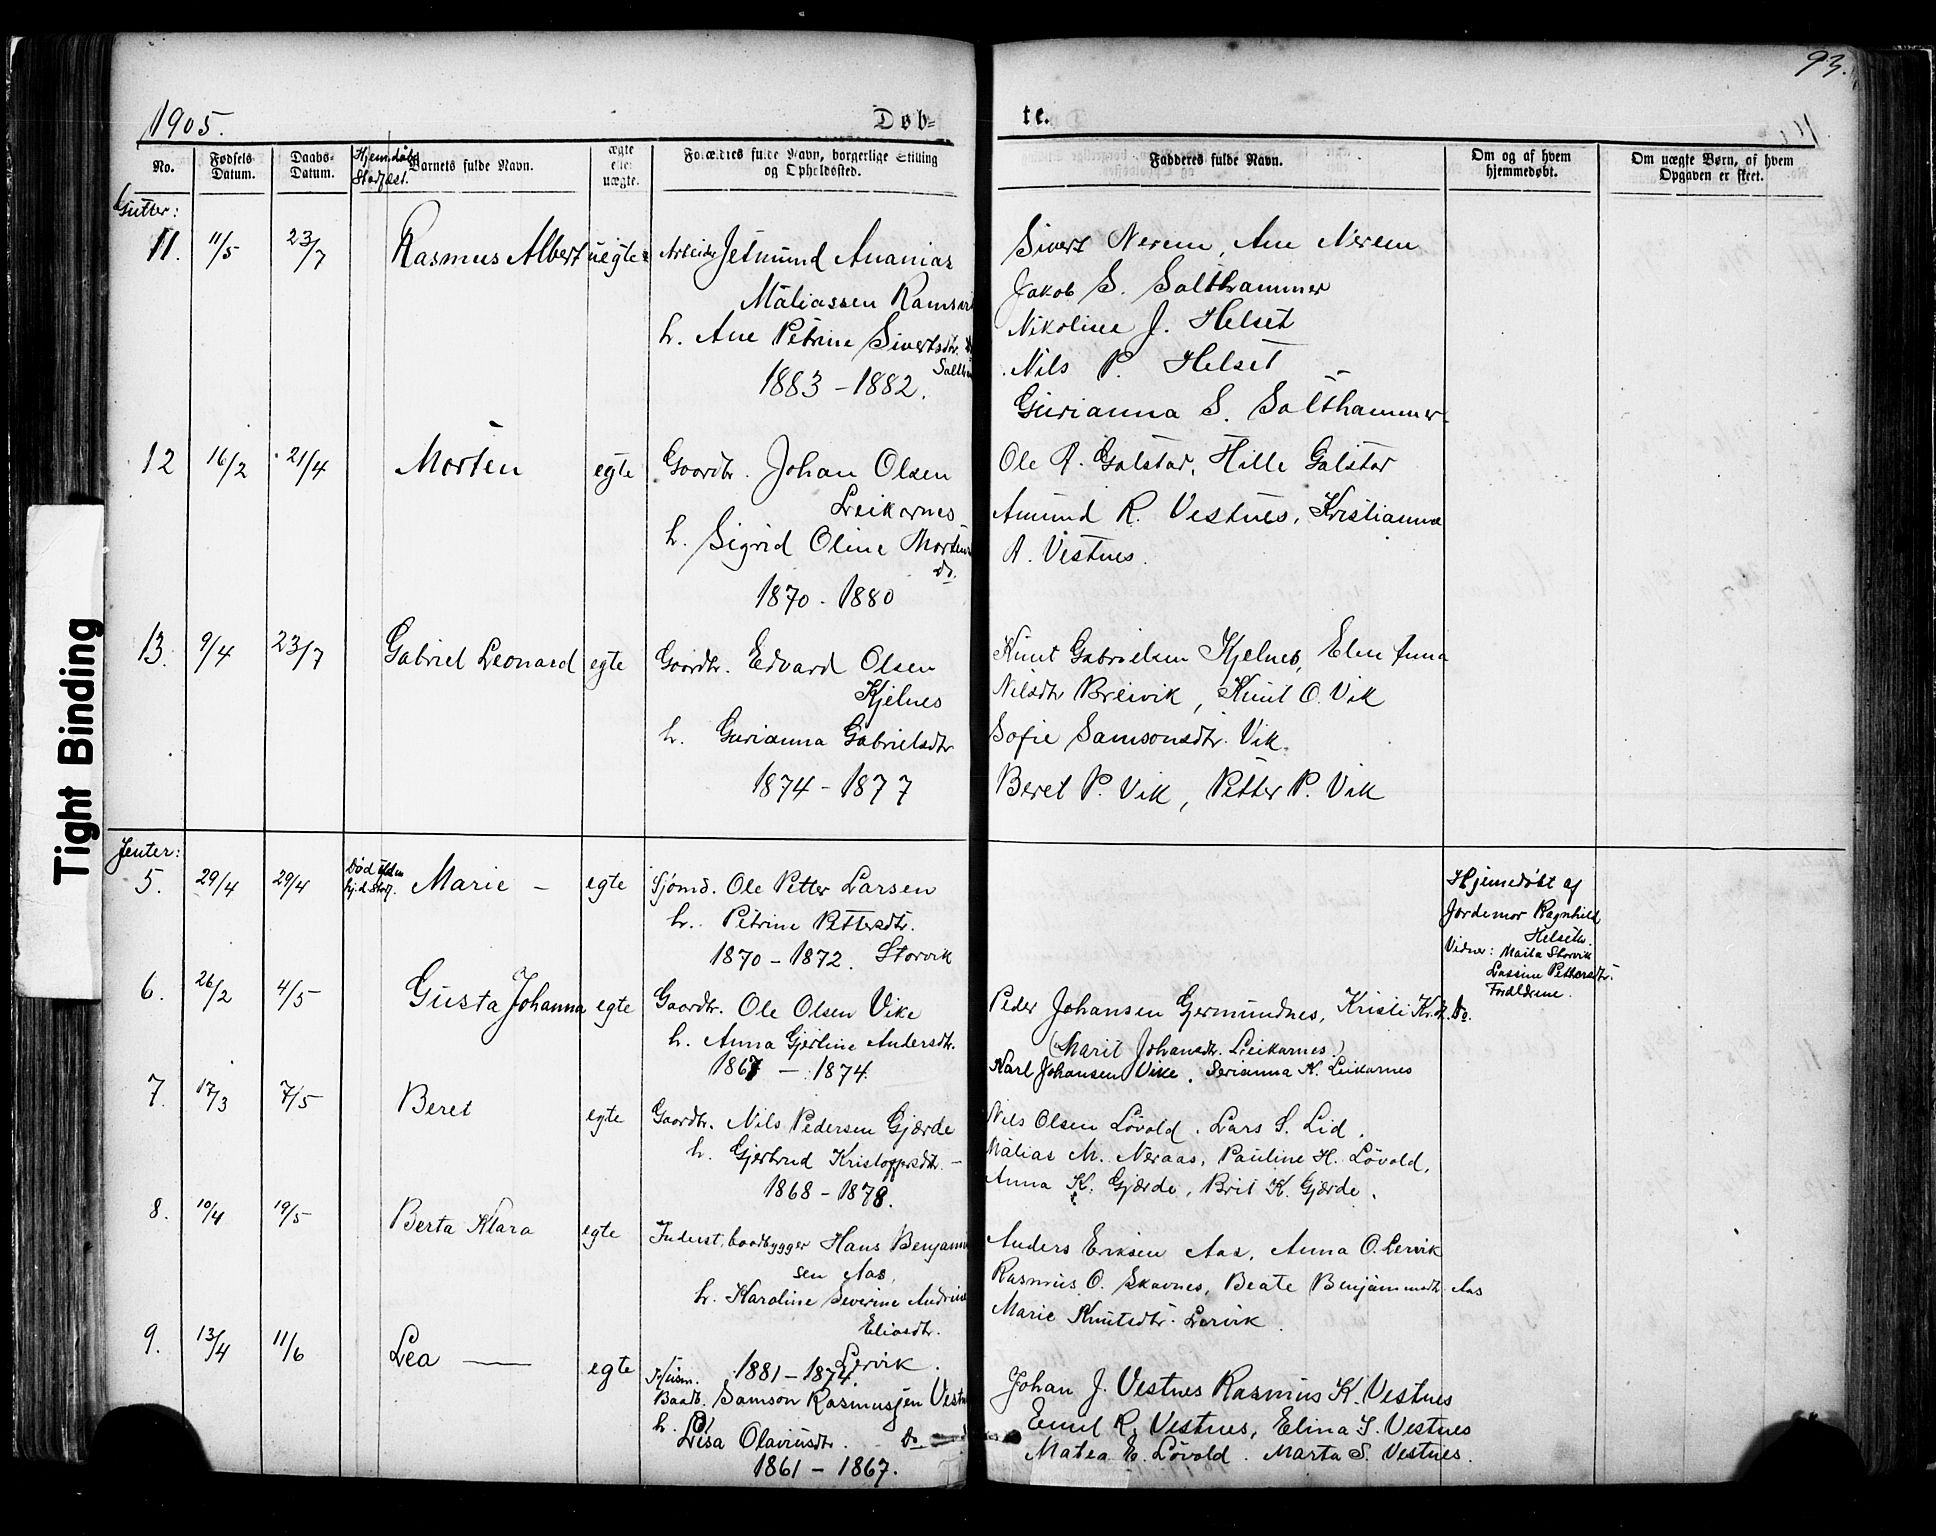 93.
1905.
Døb-
te.
No.
Fødsels-Datum.
Daabs-Datum.
Hjemdøbt Stadfæst.
Barnets fulde Navn.
ægte eller uægte.
Forældres fulde Navn, borgerlige Stilling og Opholdssted.
Fadderes fulde Navn.
Om og af hvem hjemmedøbt.
Om uægte Børn, af hvem Opgaven er skeet.
Gutter:
11. 11/5 23/7 Rasmus Albert uegte Arbeider Jetmund Ananias
Maliassen Ramsvik
h. Ane Petrine Sivertsdtr.
1883 - 1882.
Sivert Nerem, Ane Nerem
Jakob S. Salthammer
Nikoline J. Helset
Nils P. Helset
Gurianna S. Salthammer.
12 16/2 21/4 Morten egte Gaardbr. Johan Olsen
Leikarnes
h. Sigrid Oline Mortens
do.
1870 - 1880
Ole A. Galstar, Hille Galstar
Amund R. Vestnes, Kristianna
A. Vestnes.
13. 9/4 23/7 Gabriel Leonard egte Gaardbr. Edvard Olsen
Kjelnes
h. Gurianna Gabrielsdtr
1874 - 1877
Knut Gabrielsen Kjelnes, Elen Anna
Nilsdtr Breivik, Knut O. Vik
Sofie Samsonsdtr. Vik.
Beret P. Vik, Petter P. Vik
Jenter:
5. 29/4 29/4 Død uden hj.d. Stadf. Marie - egte Sjømd. Ole Petter Larsen
h. Petrine Pettersdtr.
1870 - 1872. Storvik
Hjemedøbt af
Jordemor Ragnhild
Helseth.
Vidner: Maila Storvik
Lassine Pettersdtr.
Forældrene.
6. 26/2 4/5 Gusta Johanna egte Gaardbr. Ole Olsen Vike
h. Anna Gjertine Andersdtr.
1867 - 1874.
Peder Johansen Gjermundnes, Kristi K. do.
(Marit Johansdtr. Leikarnes)
Karl Johansen Vike. Serianna K. Leikarnes
7. 17/3 7/5 Beret egte Gaardbr. Nils Pedersen Gjærde
h. Gjertrud Kristoffersdtr. -
1868 - 1878.
Nils Olsen Løvold. Lars S. Lid.
Malias M. Neraas, Pauline H. Løvold,
Anna K. Gjærde, Brit K. Gjærde.
8. 10/4 19/5 Berta Klara egte Inderst, baadbygger Hans Benjamin
sen Aas,
h. Karoline Severine Andrine
Eliasdtr.
Lervik.
1881 - 1874
Anders Eriksen Aas, Anna O. Lervik
Rasmus O. Skavnes, Beate Benjaminsdtr. Aas
Marie Knutsdtr. Lervik.
9. 13/4 11/6 Lea — egte Husm.
Baadb. Samson Rasmussen Vestnes
h. Lisa Olaviusdtr. do
1861 - 1867.
Johan J. Vestnes Rasmus K. Vestnes
Emil R. Vestnes, Elina S. Vestnes
Matea E. Løvold. Marta S. Vestnes.
Tight Binding